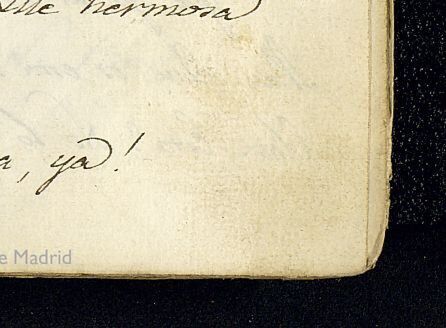 hermosa
a, ya!
e Madrid